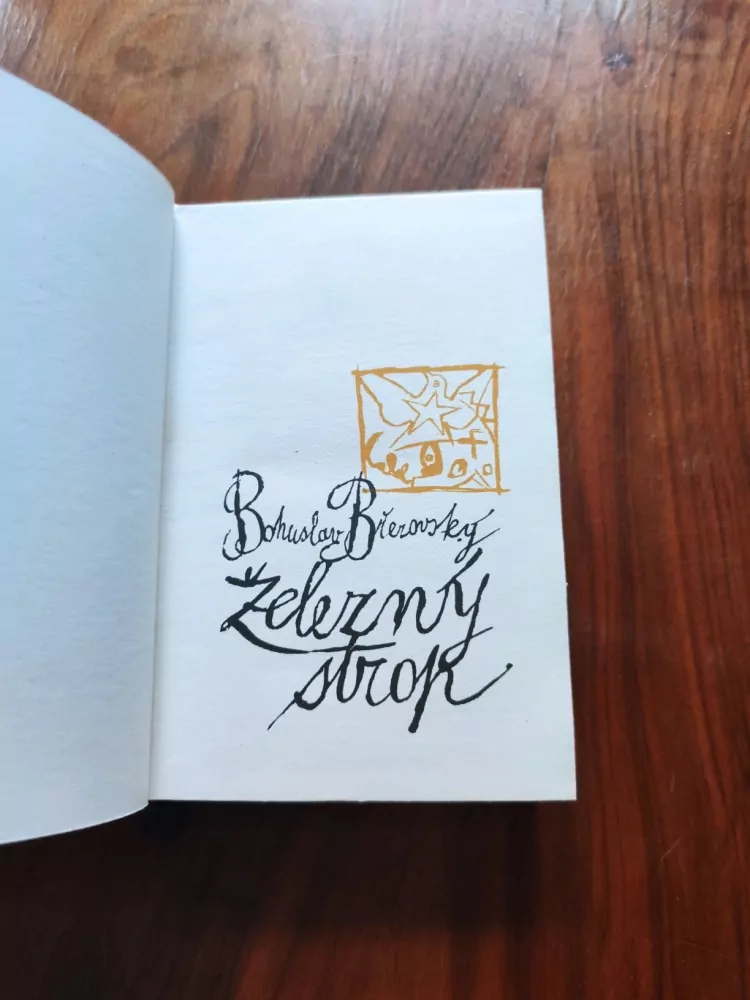 Bohuslav Březovský
Železný
strop